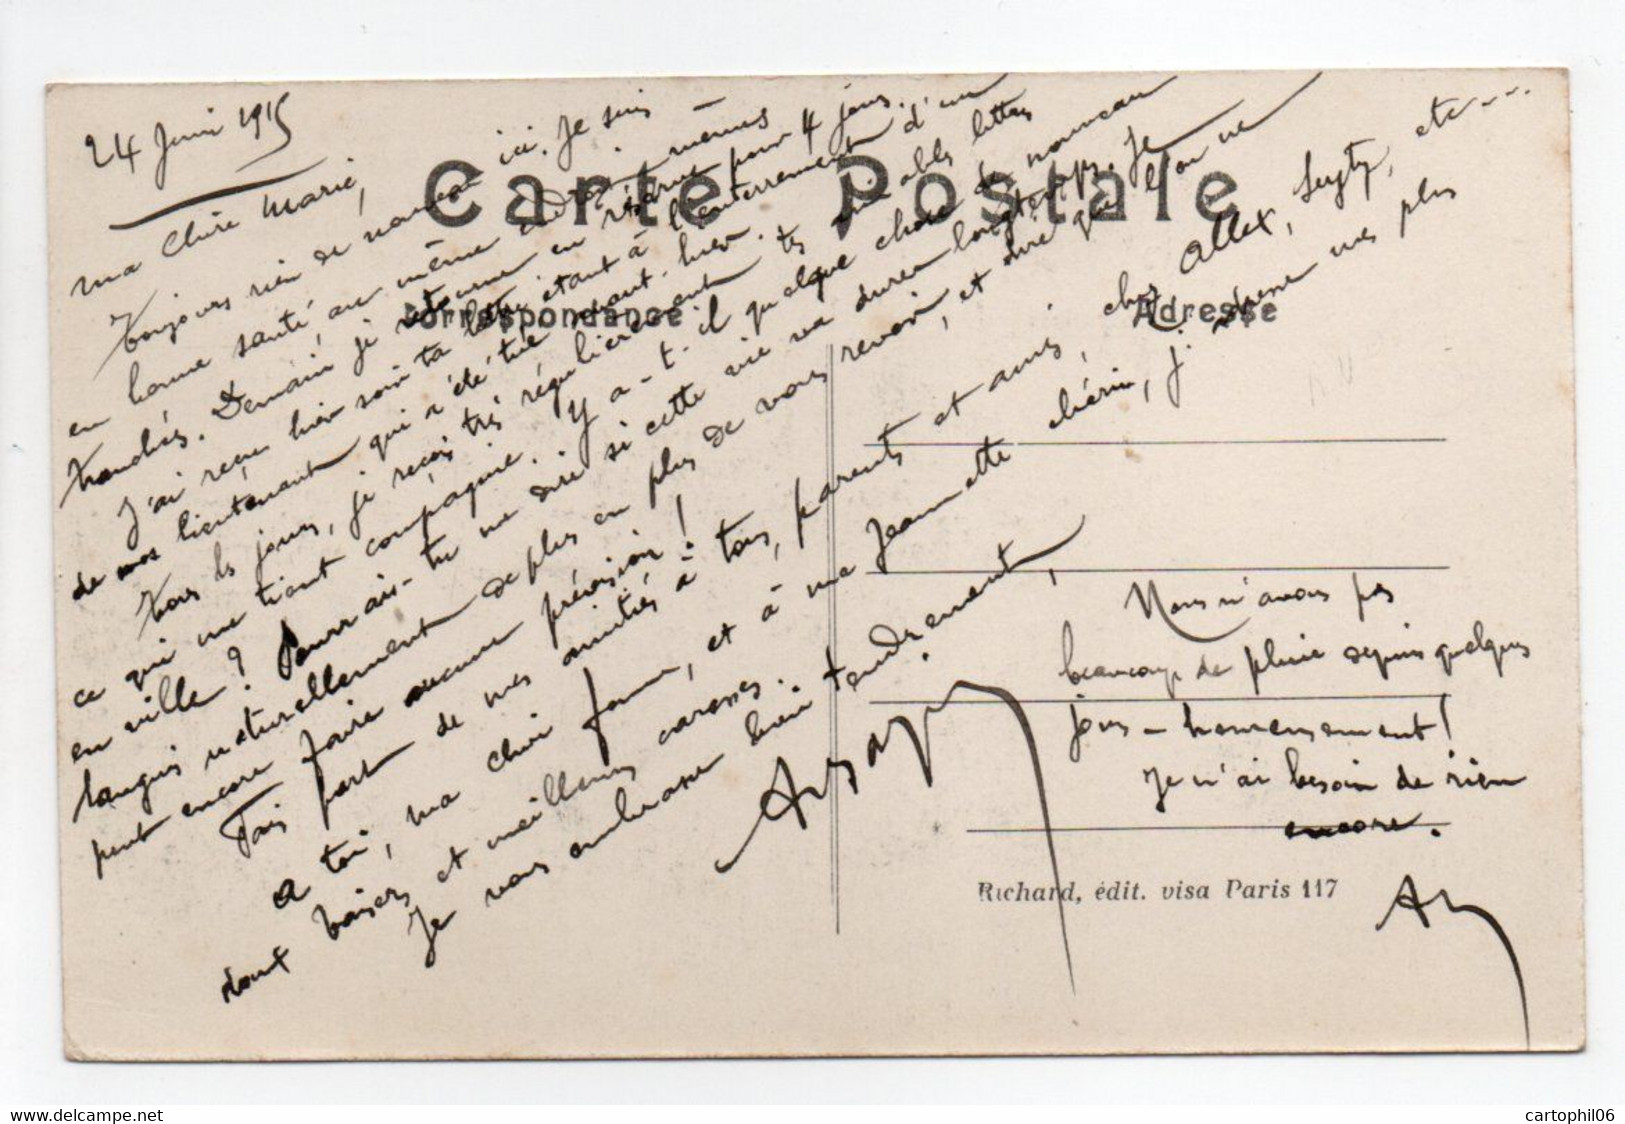 24 Juin 1915
Ma Chère Marie,
Toujours rien de nouveau ici. Je suis
en bonne santé, au même endroit, mêmes
tranchées. Demain je retourne en réserve pour 4 jours.
J'ai reçu hier soir ta lettre étant à l'enterrement d'un
de nos lieutenant qui a été tué avant-hier.
Tous les jours, je reçois très régulièrement tes aimables lettres
ce qui me tient compagnie. Y a-t-il quelque chose de nouveau
en ville ? Pourrais-tu me dire si cette vie va durer longtemps. Je
languis naturellement de plus en plus de vous revoir, et dire que l'on ne
peut encore faire aucune prévision !
Fais part de mes amitiés à tous, parents et amis, chez Allex, etc - - -
A toi, ma chère femme, et à ma Jeannette chérie, j'adresse mes plus
doux baisers et meilleures caresses.
Je vous embrasse bien tendrement,
Carte Postale
Correspondance
Adresse
Nous n'avons pas
beaucoup de pluie depuis quelques
jours - heureusement !
Je n'ai besoin de rien
encore.
Richard, édit. visa Paris 117
cartophil06